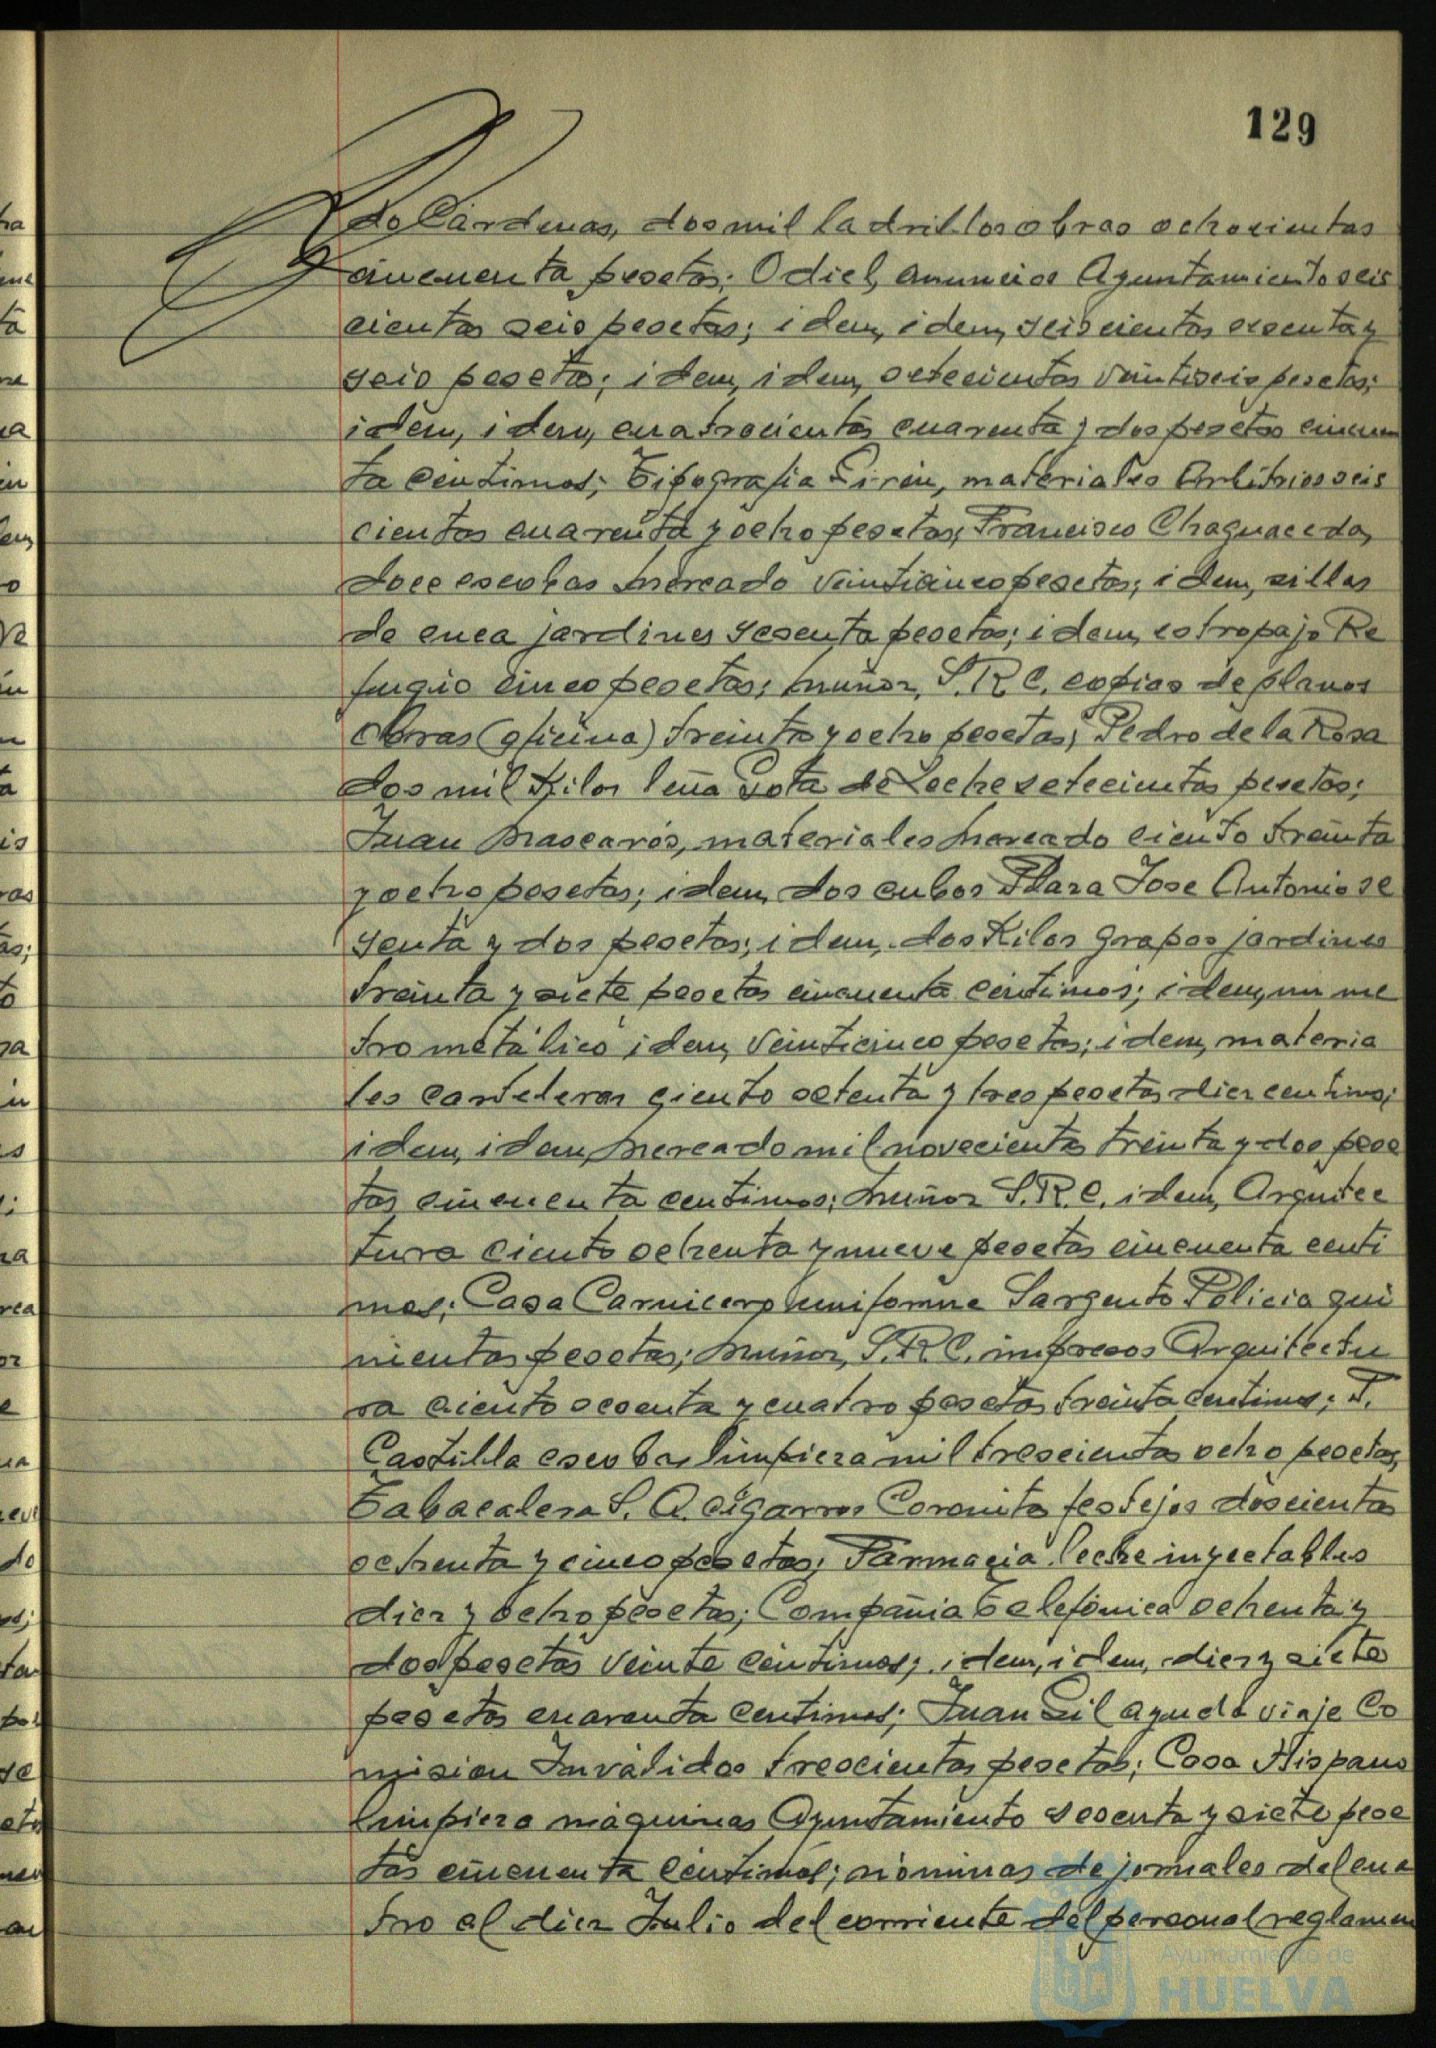 129
do Cárdenas, dos mil ladrillos obras ochocientas
cincuenta pesetas; Odiel, anuncios Ayuntamiento seis
cientas seis pesetas; idem, idem, seiscientas sesenta y
seis pesetas; idem, idem, setecientas veintiseis pesetas;
idem, idem, cuatrocientas cuarenta y dos pesetas cincuen
ta centimos; Tipografia Girón, materiales Arbitrios seis
cientas cuarenta y ocho pesetas; Francisco Chaguaceda,
doce escobas mercado veinticinco pesetas; idem, sillas
de enea jardines sesenta pesetas; idem, estropajo Re
fugio cinco pesetas; Muñoz, S.R.C. copias de planos
Obras (oficina) treinta y ocho pesetas; Pedro de la Rosa
dos mil Kilos leña Gota de Leche setecientas pesetas;
Juan Mascarós, materiales Mercado ciento treinta
y ocho pesetas; idem, dos cubos Plaza Jose Antonio se
senta y dos pesetas; idem, dos Kilos grapas jardines
treinta y siete pesetas cincuenta centimos; idem, un me
tro metálico idem, veinticinco pesetas; idem, materia
les carteleras ciento setenta y tres pesetas diez centimos;
idem, idem, Mercado mil novecientas treinta y dos pese
tas cincuenta centimos; Muñoz S.R.C. idem, Arquitec
tura ciento ochenta y nueve pesetas cincuenta centi
mos; Casa Carnicero, uniforme Sargento Policia qui
nientas pesetas; Muñoz, S.R.C. impresos Arquitectu
ra ciento sesenta y cuatro pesetas treinta centimos; F.
Castilla escobas limpieza mil trescientas ocho pesetas;
Tabacalera S. A. cigarros Coronita festejos doscientas
ochenta y cinco pesetas; Farmacia leche inyectables
diez y ocho pesetas; Compañia Telefónica ochenta y
dos pesetas veinte centimos; idem, idem, diez y siete
pesetas cuarenta centimos; Juan Gil ayuda viaje Co
mision Inválidos trescientas pesetas; Casa Hispano
limpieza máquinas Ayuntamiento sesenta y siete pese
tas cincuenta centimos; nóminas de jornales del cua
tro al diez Julio del corriente del personal reglamen
Ayuntamiento de
HUELVA